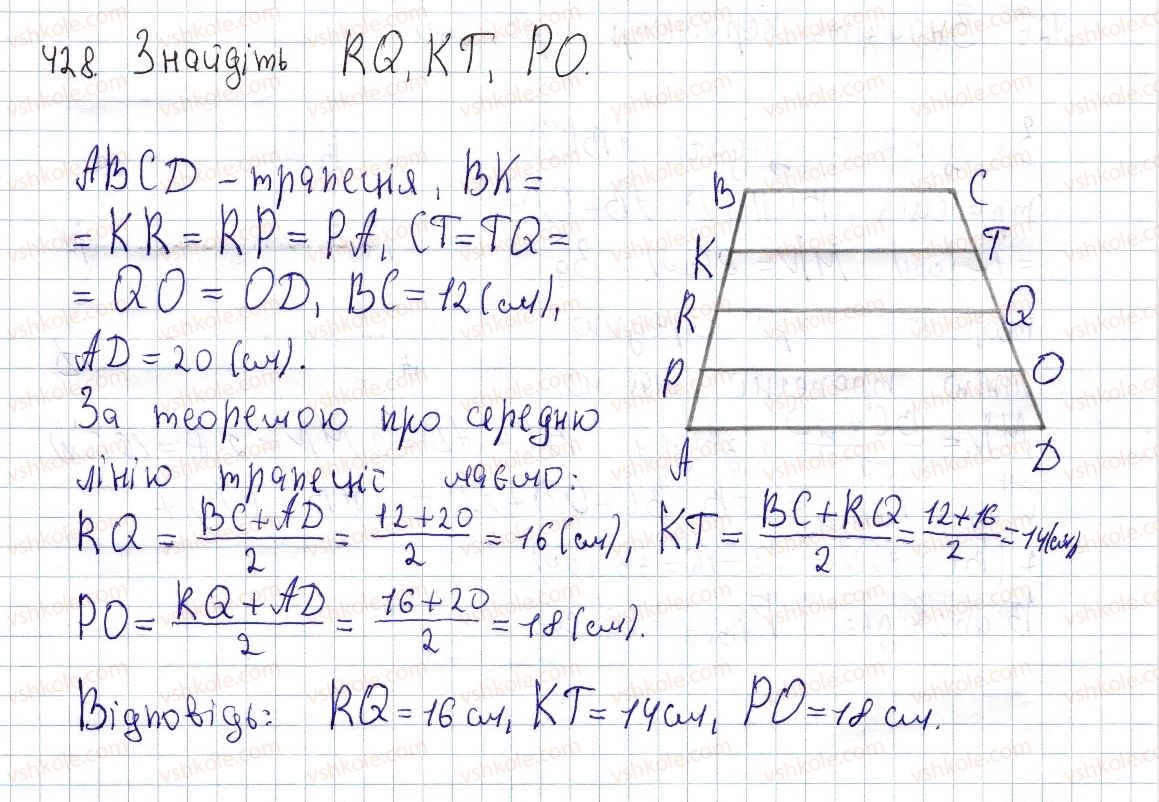 428. Знайдіть RQ, KT, PO.
ABCD – трапеція, BK =
= KR = RP = PA, CT = TQ =
= QO = OD, BC = 12 (см),
AD = 20 (см).
За теоремою про середню
лінію трапеції маємо:
RQ = (BC + AD)/2 = (12 + 20)/2 = 16 (см), KT = (BC + RQ)/2 = (12 + 16)/2 = 14 (см)
PO = (RQ + AD)/2 = (16 + 20)/2 = 18 (см).
Відповідь: RQ = 16 см, KT = 14 см, PO = 18 см.
B C
K T
R Q
P O
A D
vshkole.com